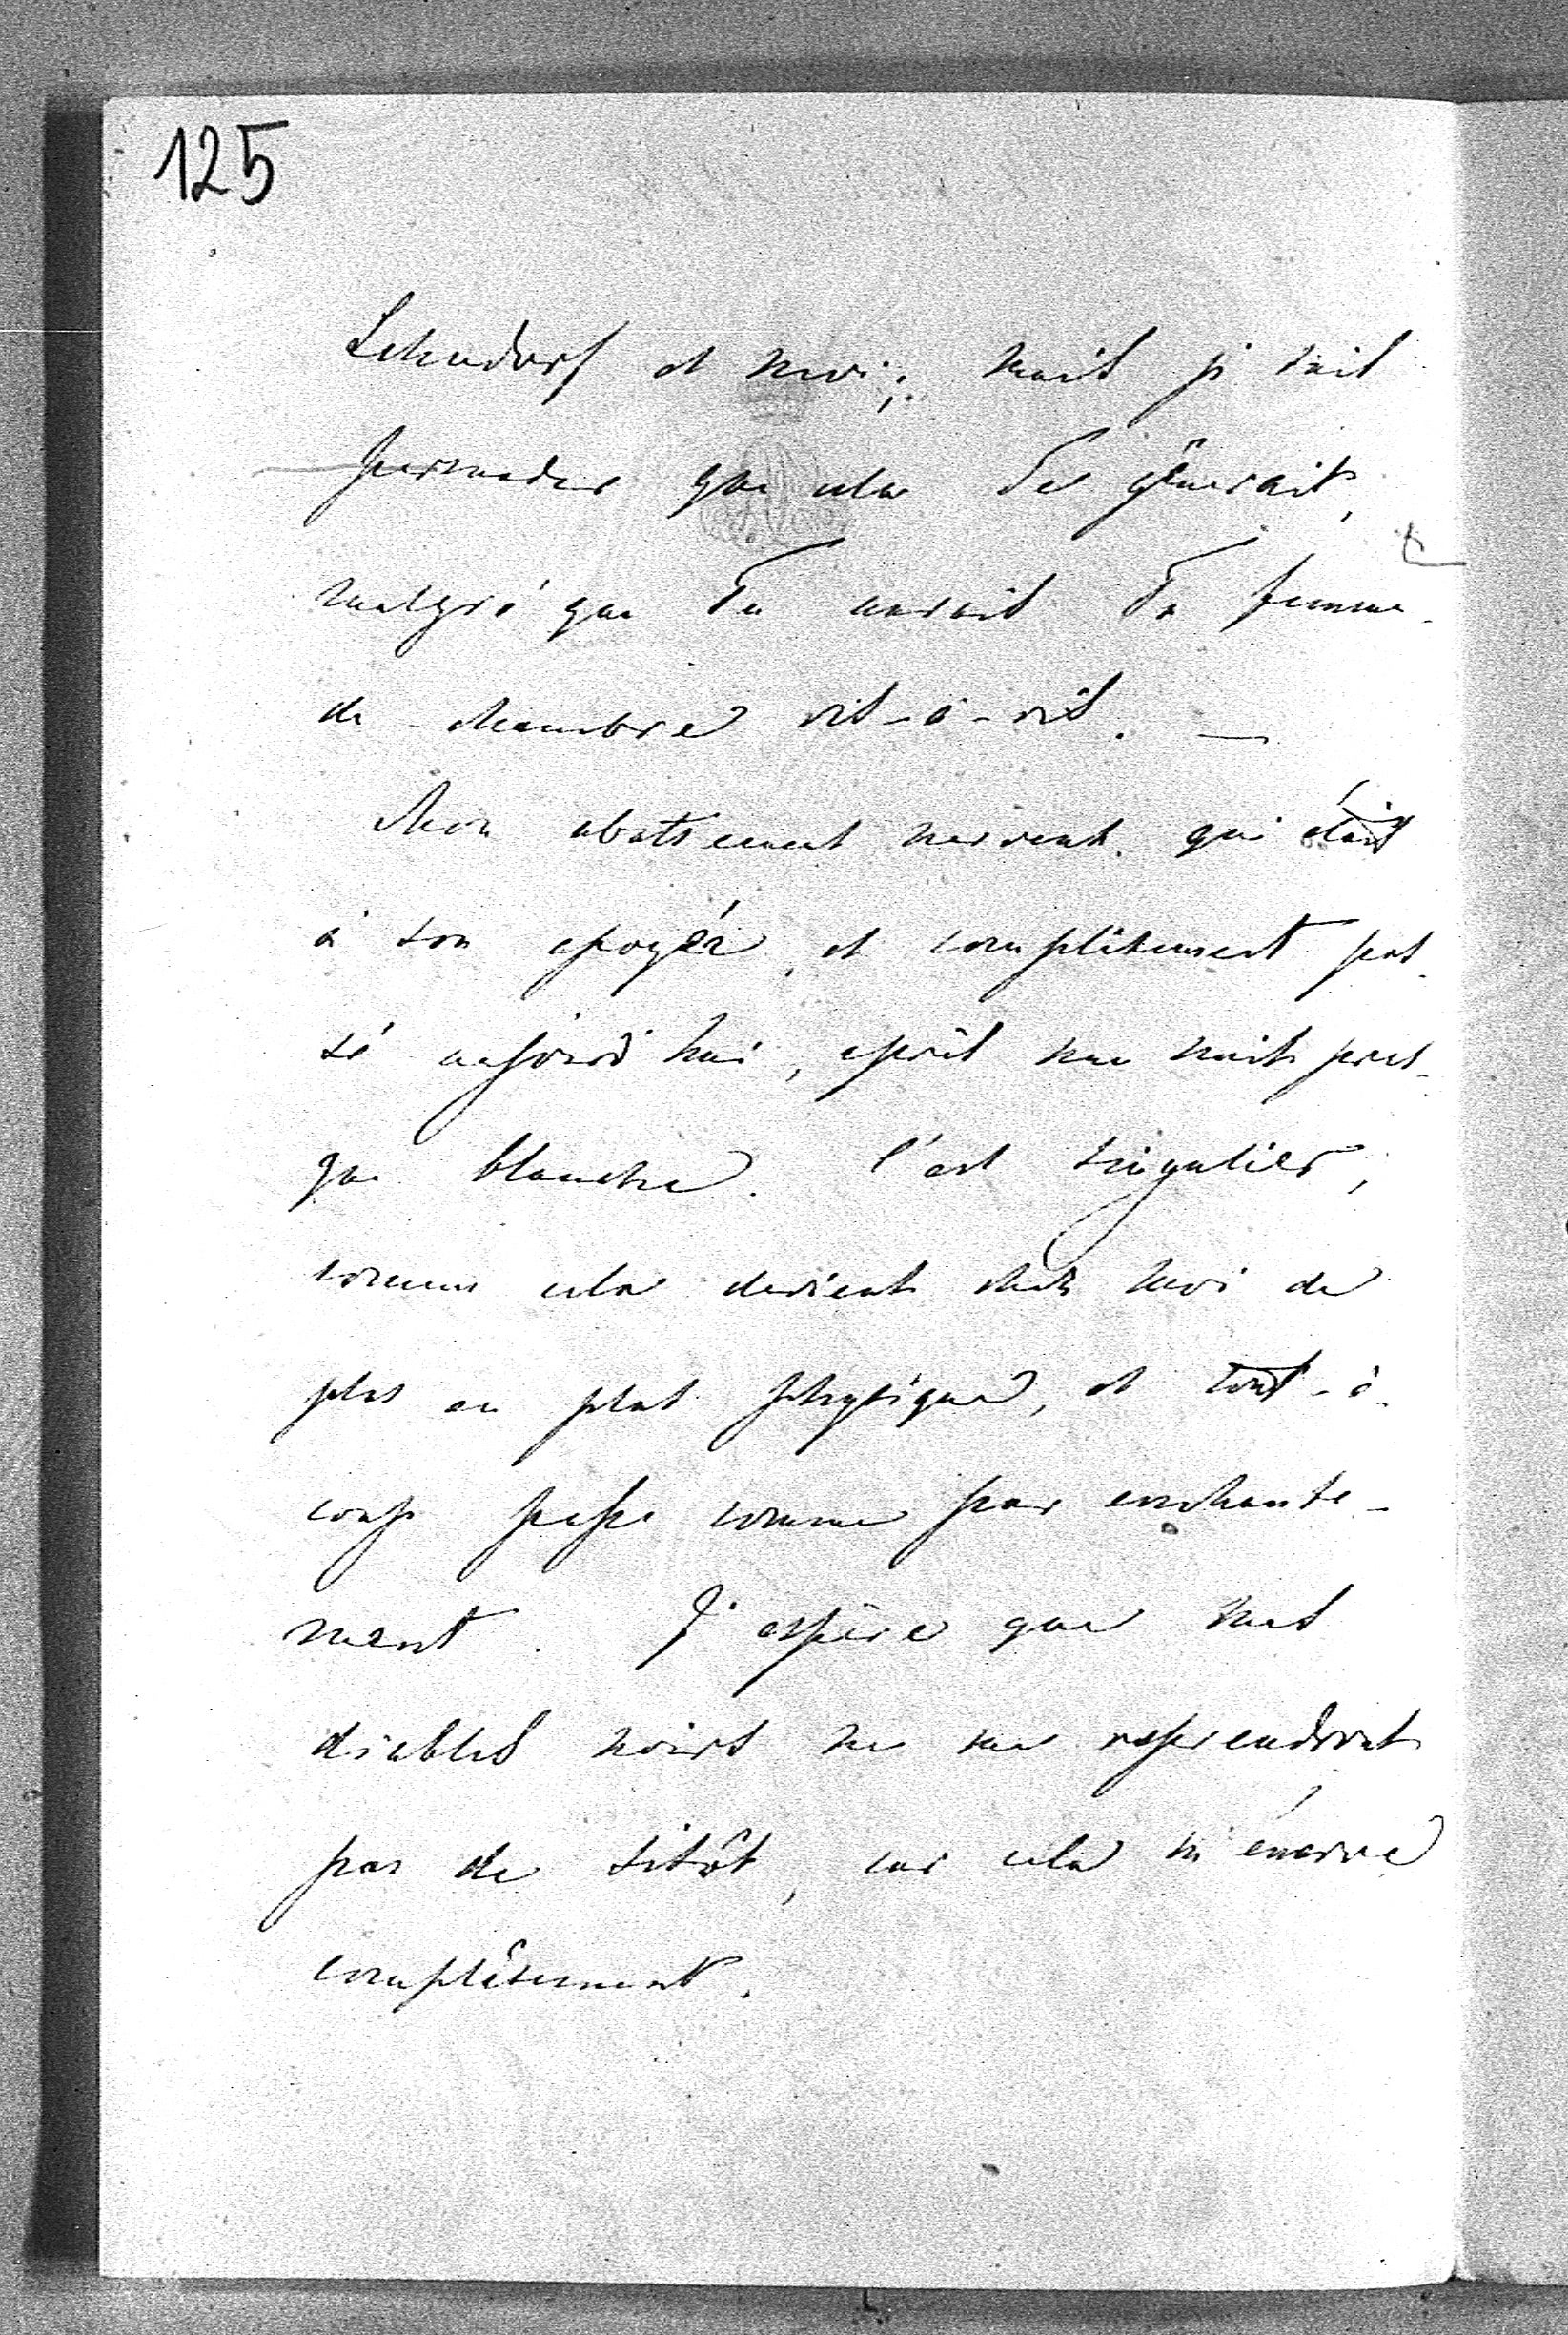 125
Lehndorf et moi; mais je suis
persuadée que cela Te gênerait,
malgré que Tu aurais Ta femme
de chambre vis-à-vis. —
Mon abattement nerveux qui était
à son apogée, et complètement pas-
sé aujourd'hui, après une nuit pres-
que blanche. C'est singulier,
comme cela devient chez moi de
plus en plus physique, et tout-à-
coup passe comme par enchante-
ment. J'espère que mes
diables noirs ne me reprendront
pas de sitôt, car cela m'énerve
complètement.